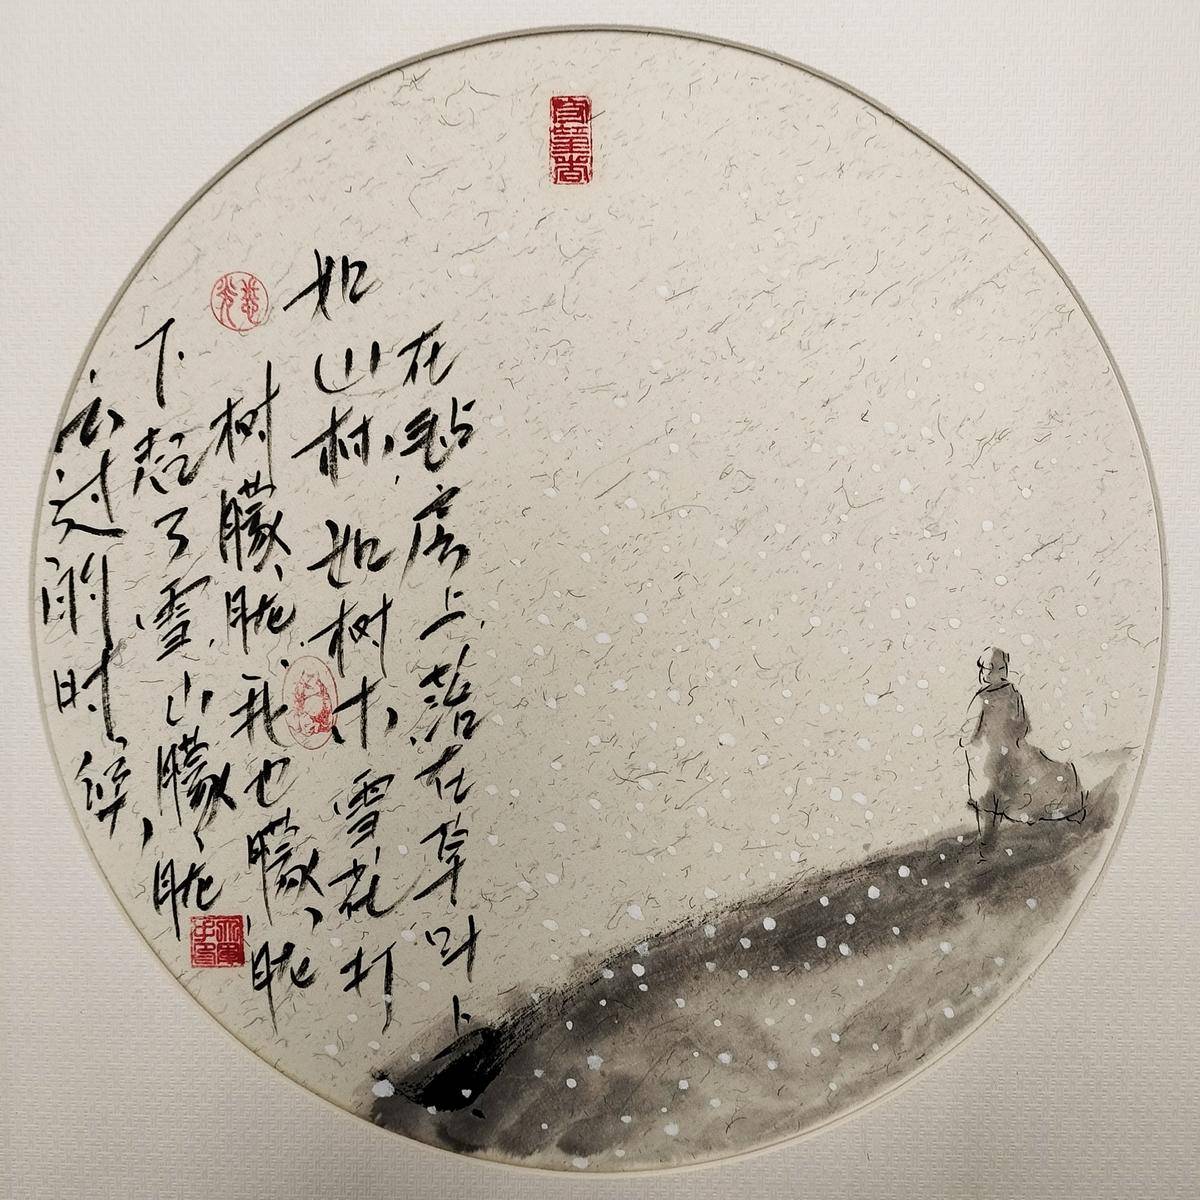 去过的时候,
下起了雪,山朦胧
树朦胧我也朦胧
如山林,如树木,雪花打
在毡房上,落在草叶上